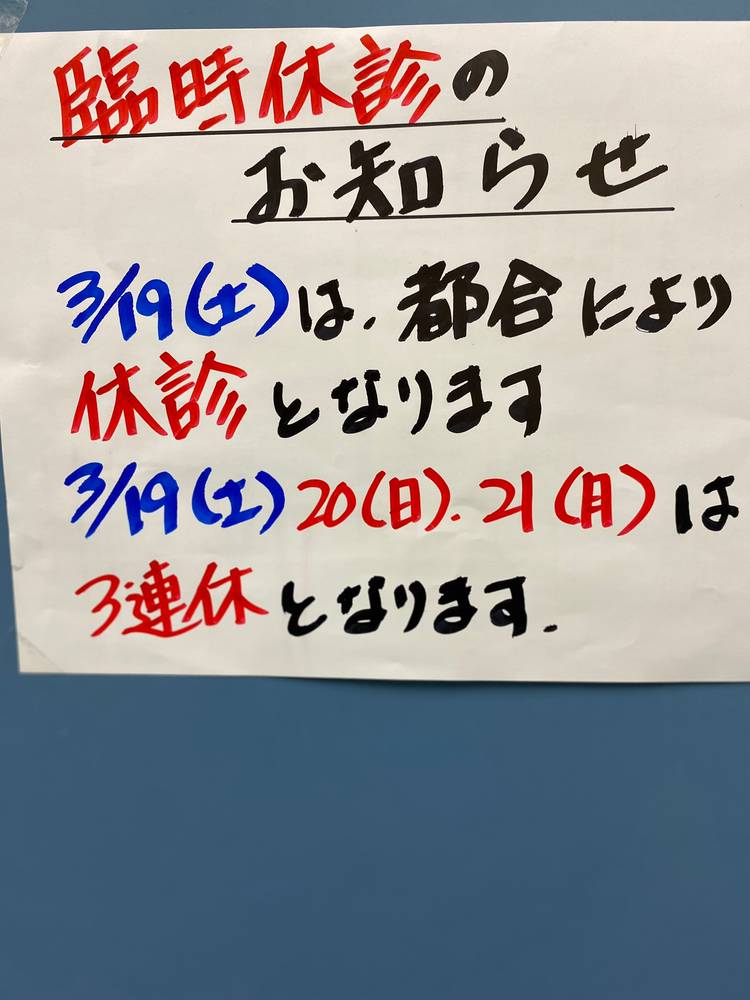 臨時休診の
お知らせ
3/19(土)は、都合により
休診となります
3/19(土)20(日).21(月)は
3連休となります.